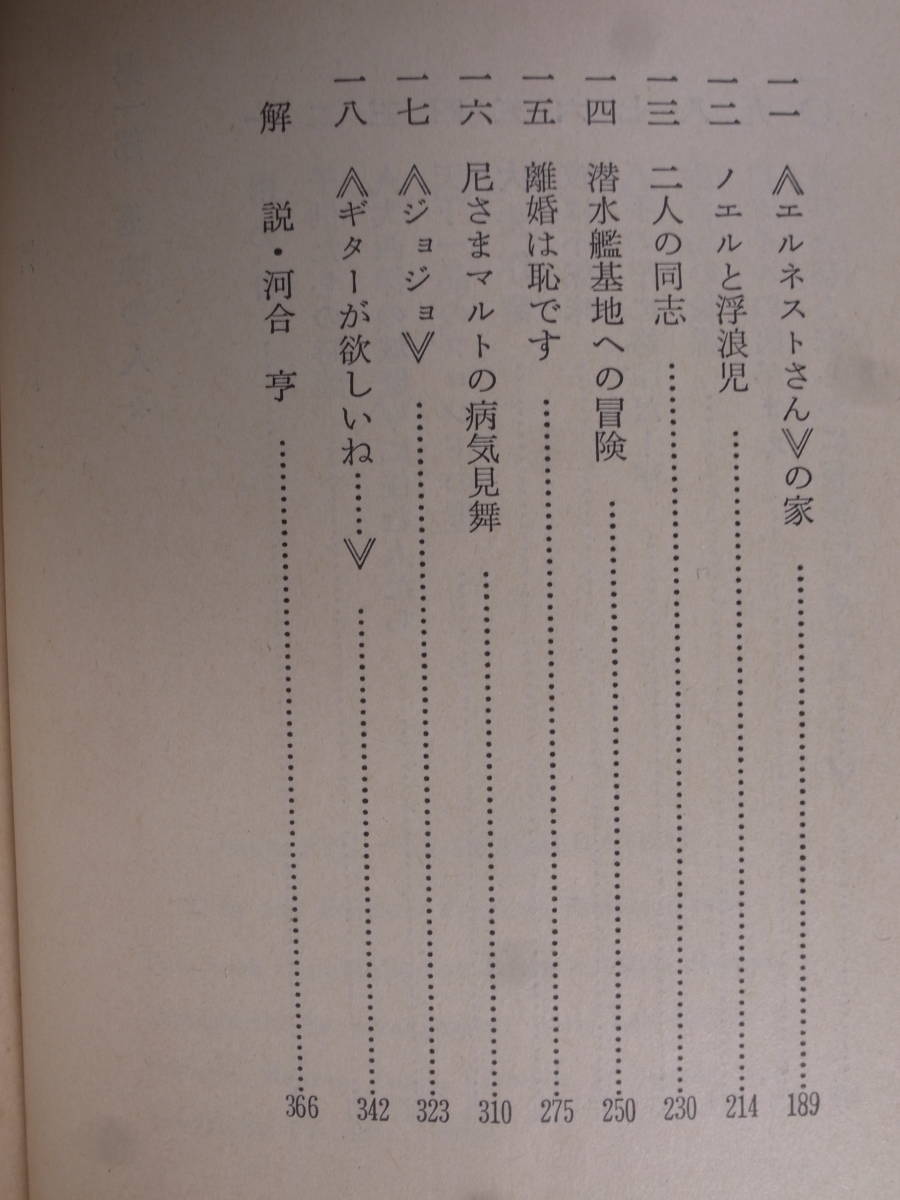 一一　《エルネストさん》の家……………………189
一二　ノエルと浮浪児……………………214
一三　二人の同志……………………230
一四　潜水艦基地への冒険……………………250
一五　離婚は恥です……………………275
一六　尼さまマルトの病気見舞……………………310
一七　《ジョジョ》……………………323
一八　《ギターが欲しいね……》……………………342
解　説・河合　亨……………………366